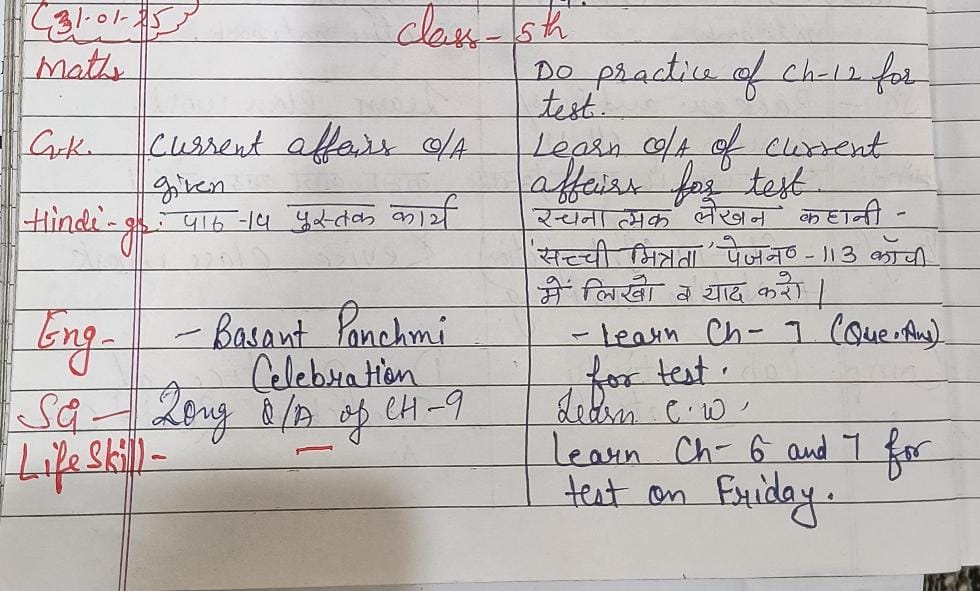 (31-01-25)
Class - 5th
Maths Do practice of Ch-12 for
test.
G.K. Current affairs Q/A Learn Q/A of current
given affairs for test.
Hindi - gr: पाठ -14 पुस्तक कार्य रचनात्मक लेखन कहानी -
'सच्ची मित्रता' पेज न० - 113 कॉपी
में लिखो व याद करो |
Eng- - Basant Panchmi - Learn Ch- 7 (Que.Ans)
Celebration for test.
SG - Long Q/A of CH-9 Learn C.W,
Life Skill- - Learn Ch- 6 and 7 for
test on Friday.